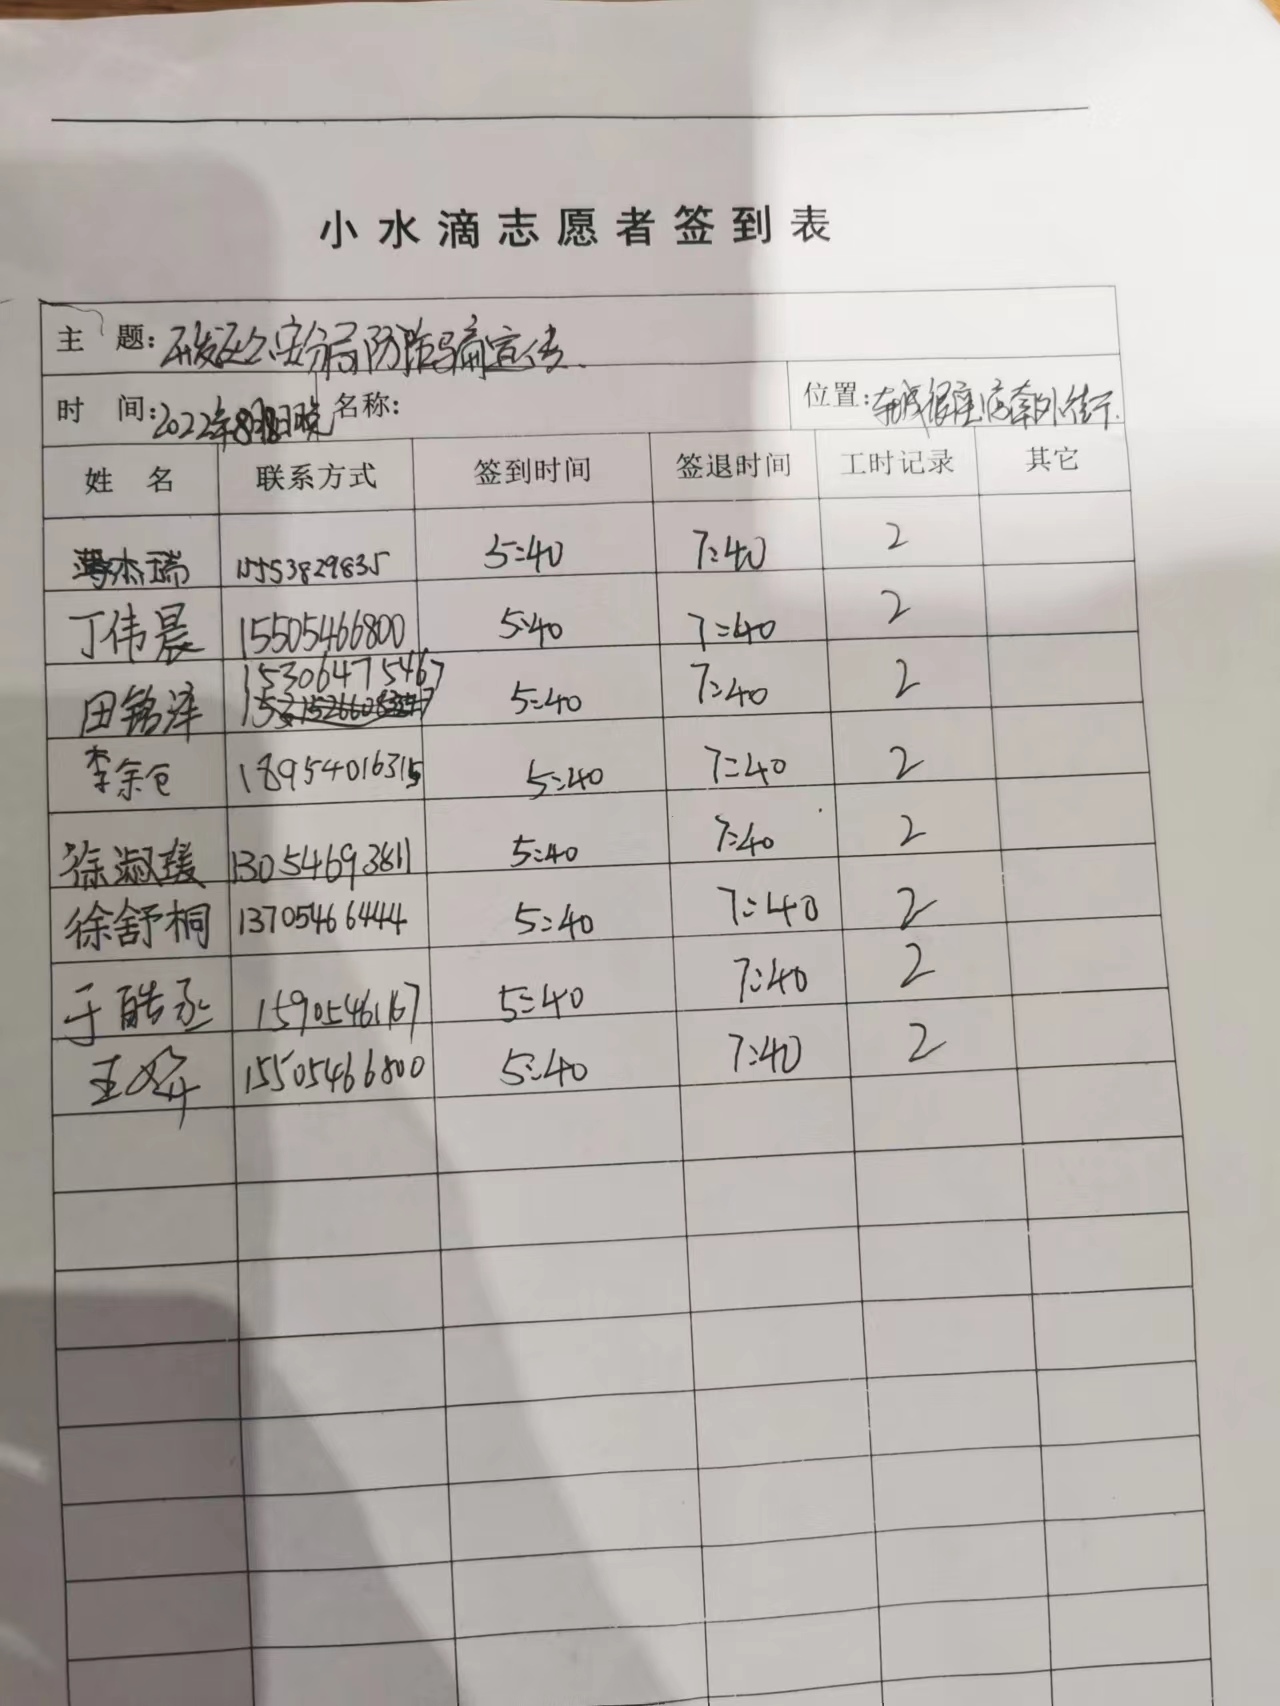 小水滴志愿者签到表
主 题: 开发区公安分局防诈骗宣传
时 间: 2022年8月 日晚 名称: 位置: 东城银座 街
姓 名 联系方式 签到时间 签退时间 工时记录 其它
薄杰瑞 15553829835 5:40 7:40 2
丁伟晨 15505466800 5:40 7:40 2
田铭泽 15306475467 5:40 7:40 2
李余仓 18954016315 5:40 7:40 2
徐淑瑗 13054693811 5:40 7:40 2
徐舒桐 13705466444 5:40 7:40 2
于皓丞 1590546167 5:40 7:40 2
王 15505466800 5:40 7:40 2